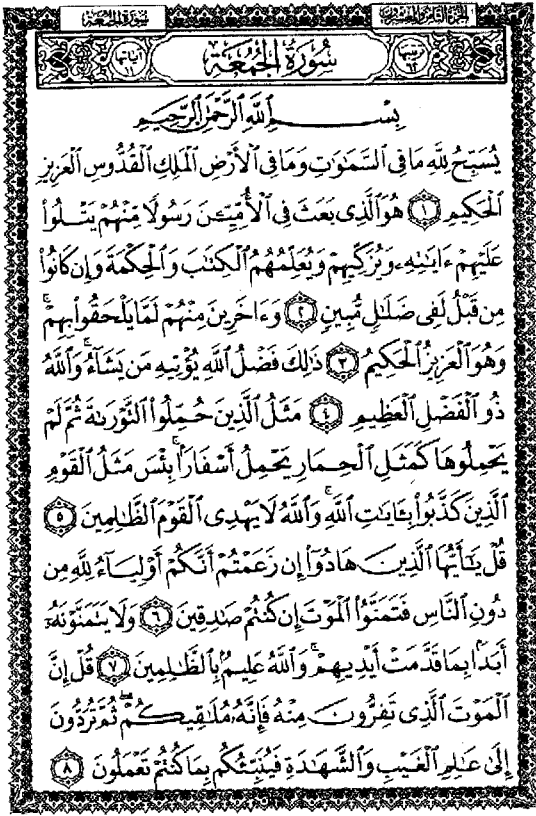 سُورَةُ الجُمُعَةِ الجزء الثامن والعشرون
آياتها ١١ سُورَةُ الجُمُعَةِ ترتيبها ٦٢
بِسْمِ اللَّهِ الرَّحْمَٰنِ الرَّحِيمِ
يُسَبِّحُ لِلَّهِ مَا فِي السَّمَٰوَٰتِ وَمَا فِي الْأَرْضِ الْمَلِكِ الْقُدُّوسِ الْعَزِيزِ
الْحَكِيمِ ١ هُوَ الَّذِي بَعَثَ فِي الْأُمِّيِّـۧنَ رَسُولًا مِّنْهُمْ يَتْلُوا۟
عَلَيْهِمْ ءَايَٰتِهِۦ وَيُزَكِّيهِمْ وَيُعَلِّمُهُمُ الْكِتَٰبَ وَالْحِكْمَةَ وَإِن كَانُوا۟
مِن قَبْلُ لَفِي ضَلَٰلٍ مُّبِينٍ ٢ وَءَاخَرِينَ مِنْهُمْ لَمَّا يَلْحَقُوا۟ بِهِمْ ۚ
وَهُوَ الْعَزِيزُ الْحَكِيمُ ٣ ذَٰلِكَ فَضْلُ اللَّهِ يُؤْتِيهِ مَن يَشَآءُ ۚ وَاللَّهُ
ذُو الْفَضْلِ الْعَظِيمِ ٤ مَثَلُ الَّذِينَ حُمِّلُوا۟ التَّوْرَىٰةَ ثُمَّ لَمْ
يَحْمِلُوهَا كَمَثَلِ الْحِمَارِ يَحْمِلُ أَسْفَارًۢا ۚ بِئْسَ مَثَلُ الْقَوْمِ
الَّذِينَ كَذَّبُوا۟ بِـَٔايَٰتِ اللَّهِ ۚ وَاللَّهُ لَا يَهْدِي الْقَوْمَ الظَّٰلِمِينَ ٥
قُلْ يَٰٓأَيُّهَا الَّذِينَ هَادُوٓا۟ إِن زَعَمْتُمْ أَنَّكُمْ أَوْلِيَآءُ لِلَّهِ مِن
دُونِ النَّاسِ فَتَمَنَّوُا۟ الْمَوْتَ إِن كُنتُمْ صَٰدِقِينَ ٦ وَلَا يَتَمَنَّوْنَهُۥٓ
أَبَدًۢا بِمَا قَدَّمَتْ أَيْدِيهِمْ ۚ وَاللَّهُ عَلِيمٌۢ بِالظَّٰلِمِينَ ٧ قُلْ إِنَّ
الْمَوْتَ الَّذِي تَفِرُّونَ مِنْهُ فَإِنَّهُۥ مُلَٰقِيكُمْ ۖ ثُمَّ تُرَدُّونَ
إِلَىٰ عَٰلِمِ الْغَيْبِ وَالشَّهَٰدَةِ فَيُنَبِّئُكُم بِمَا كُنتُمْ تَعْمَلُونَ ٨